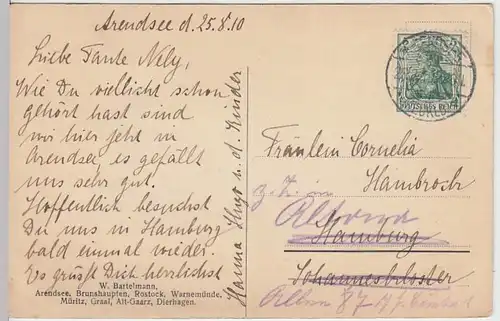 Arendsee d. 25.8.10
Liebe Tante Nely,
Wie Du vielleicht schon
gehört hast sind
wir hier jetzt in
Arendsee, es gefällt
uns sehr gut.
Hoffentlich besuchst
Du uns in Hamburg
bald einmal wieder.
Es grüßt Dich herzlichst
Hanna Hugo u. d. Kinder
W. Bartelmann,
Arendsee, Brunshaupten, Rostock, Warnemünde,
Müritz, Graal, Alt-Gaarz, Dierhagen.
DEUTSCHES REICH
Fräulein Cornelia
Hambrock
z. Z. in
Altona
Hamburg
Johanneskloster
87